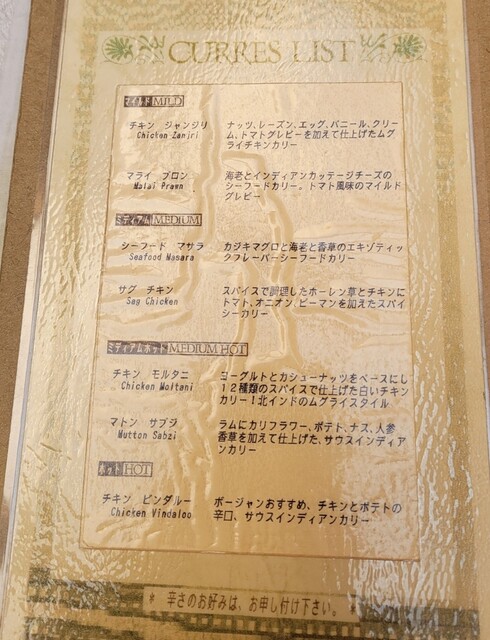 CURRES LIST
マイルド MILD
チキン ジャンジリ
Chicken Zanjri
ナッツ、レーズン、エッグ、パニール、クリー
ム、トマトグレビーを加えて仕上げたムグ
ライチキンカリー
マライ プロン
Malai Prawn
海老とインディアンカッテージチーズの
シーフードカリー。トマト風味のマイルド
グレビー
ミディアム MEDIUM
シーフード マサラ
Seafood Masara
カジキマグロと海老と香草のエキゾティッ
クフレーバーシーフードカリー
サグ チキン
Sag Chicken
スパイスで調理したホーレン草とチキンに
トマト、オニオン、ピーマンを加えたスパイ
シーカリー
ミディアムホット MEDIUM HOT
チキン モルタニ
Chicken Moltani
ヨーグルトとカシューナッツをベースにし
12種類のスパイスで仕上げた白いチキン
カリー!北インドのムグライスタイル
マトン サブジ
Mutton Sabzi
ラムにカリフラワー、ポテト、ナス、人参
香草を加えて仕上げた、サウスインディア
ンカリー
ホット HOT
チキン ビンダルー
Chicken Vindaloo
ボージャンおすすめ、チキンとポテトの
辛口、サウスインディアンカリー
* 辛さのお好みは、お申し付け下さい。 *